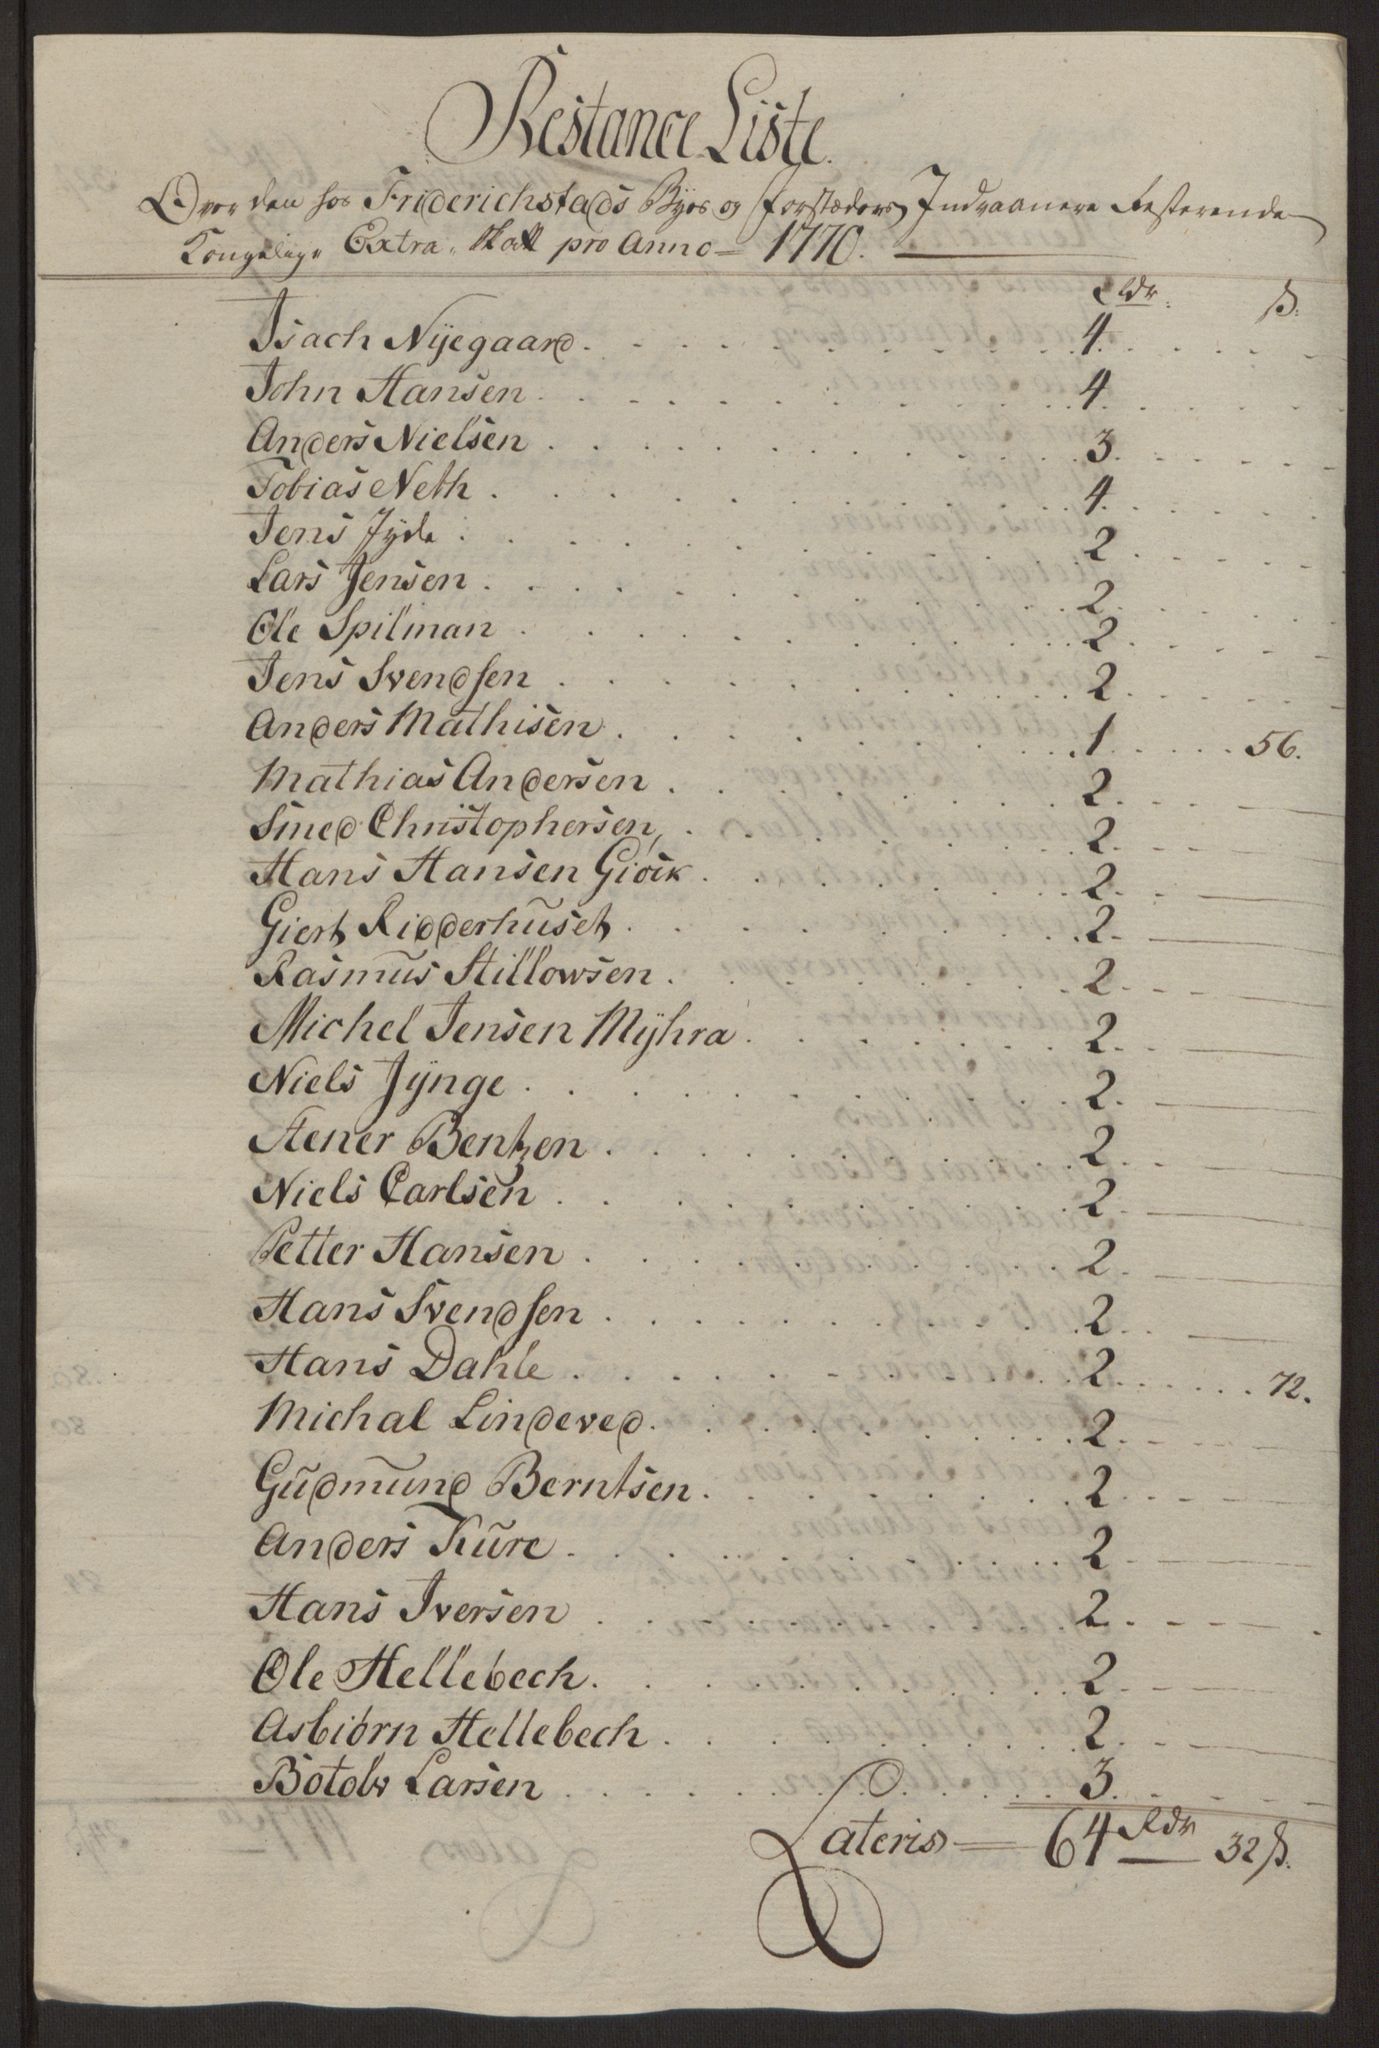 Restance Liste.
Over den hos Friderichstads Byes og Forstæders Indvaanere Resterende
Kongelige Extra Skatt pro Anno 1770.
Rdr. ß.
Isach Nÿegaard. 4.
John Hansen. 4.
Anders Nielsen. 3.
Tobias Neth. 4.
Jens Jyde. 2.
Lars Jensen. 2.
Ole Spilman. 2.
Jens Svendsen. 2.
Anders Mathisen. 1. 56.
Mathias Andersen. 2.
Smed Christophersen. 2.
Hans Hansen Giöik. 2.
Giert Ridderhuset. 2.
Rasmus Stillowsen. 2.
Michel Jensen Mÿhra. 2.
Niels Jÿnge. 2.
Stener Bentzen. 2.
Niels Carlsen. 2.
Petter Hansen. 2.
Hans Svendsen. 2.
Hans Dahle. 2. 72.
Michal Lindeved. 2.
Gudmund Berntsen. 2.
Anders Kure. 2.
Hans Iversen. 2.
Ole Hellebech. 2.
Asbiörn Hellebech. 2.
Botolv Larsen. 3.
Lateris 64 Rdr 32 ß.